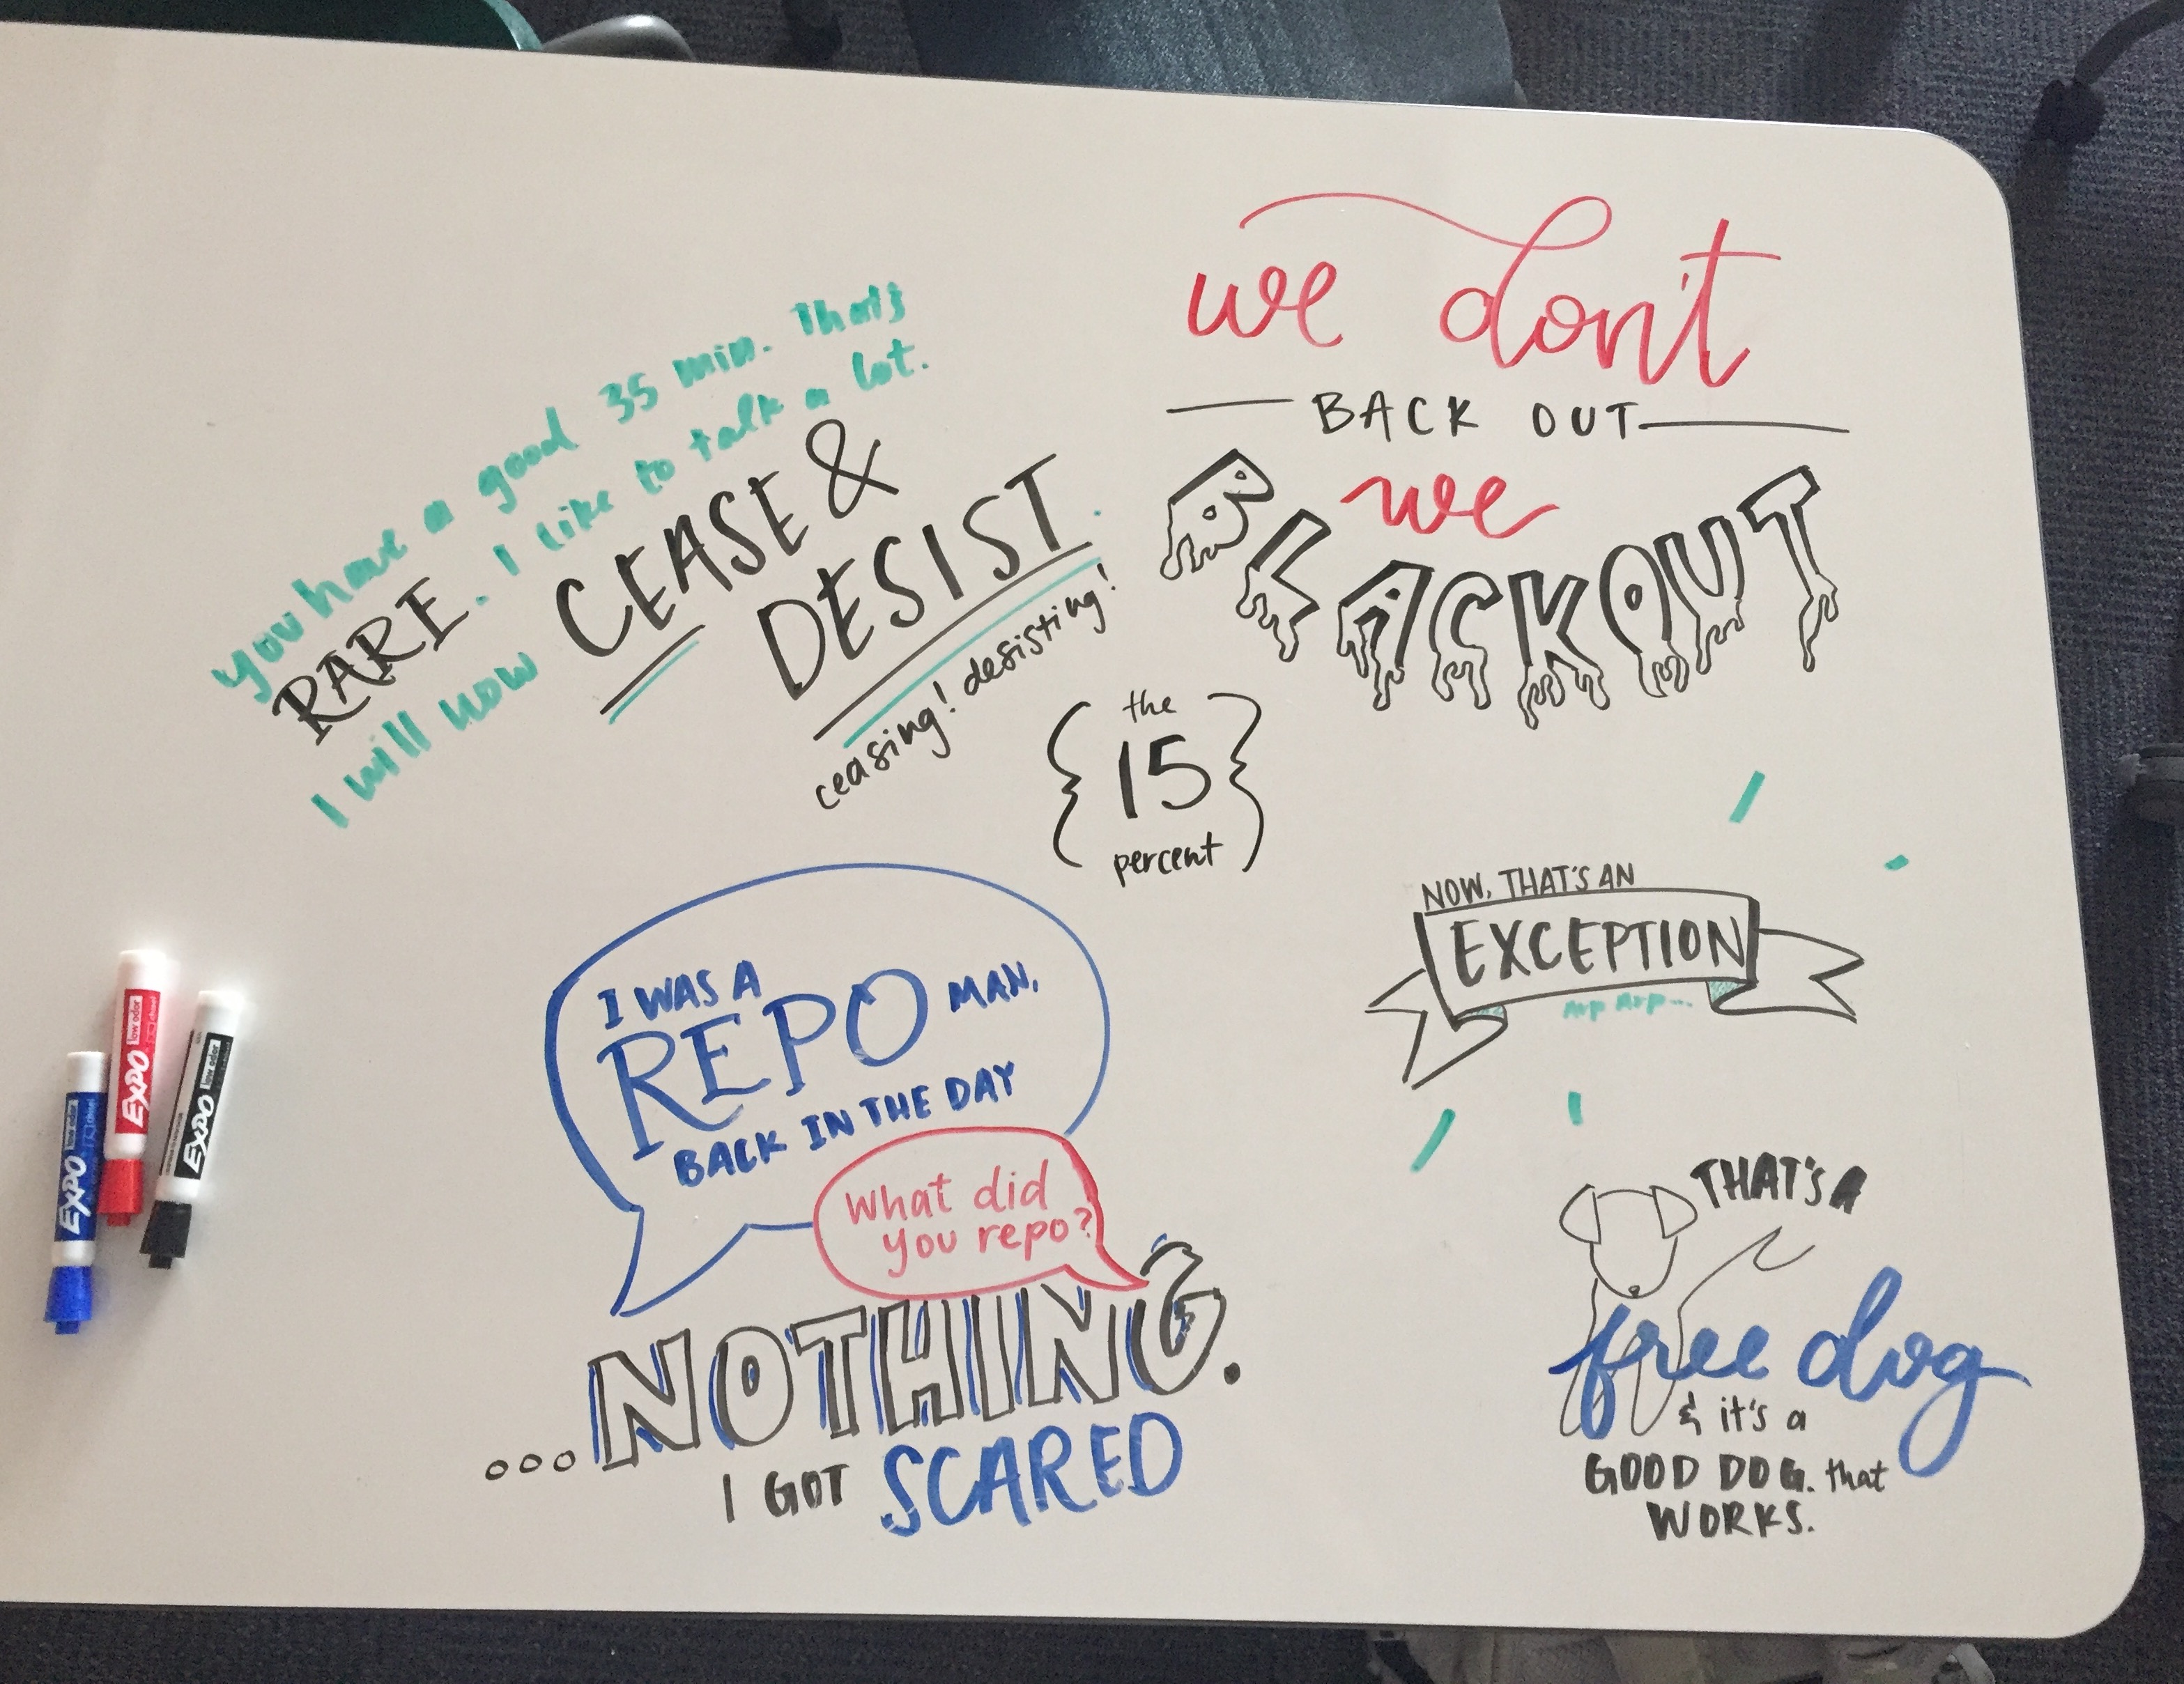 you have a good 35 min. that's
RARE. I like to talk a lot.
I will now CEASE &
DESIST.
ceasing! desisting!
we don't
BACK OUT
we
BLACKOUT
the
15
percent
NOW, THAT'S AN
EXCEPTION
I WAS A
REPO MAN,
BACK IN THE DAY
What did
you repo?
...NOTHING.
I GOT SCARED
THAT'S A
free dog
& it's a
GOOD DOG. that
WORKS.
EXPO
low odor
EXPO
low odor
EXPO
low odor